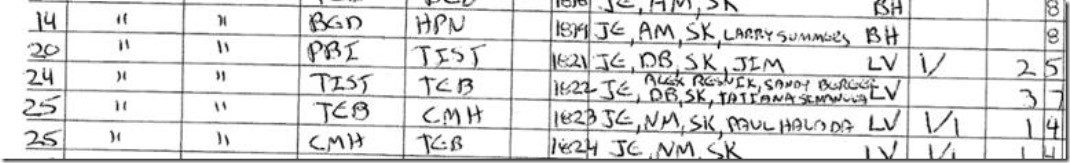 1818 JE, AM, SK BH 8
14 " " BGD HPN 1819 JE, AM, SK, LARRY SUMMERS BH 8
20 " " PBI TIST 1821 JE, DB, SK, JIM LV 1/ 2 5
24 " " TIST TEB 1822 JE, ALEX RESNIK, SANDY BERGER, DB, SK, TATIANA LV 3 7
25 " " TEB CMH 1823 JE, NM, SK, PAUL LV 1/1 1 4
25 " " CMH TEB 1824 JE, NM, SK LV 1/1 1 4